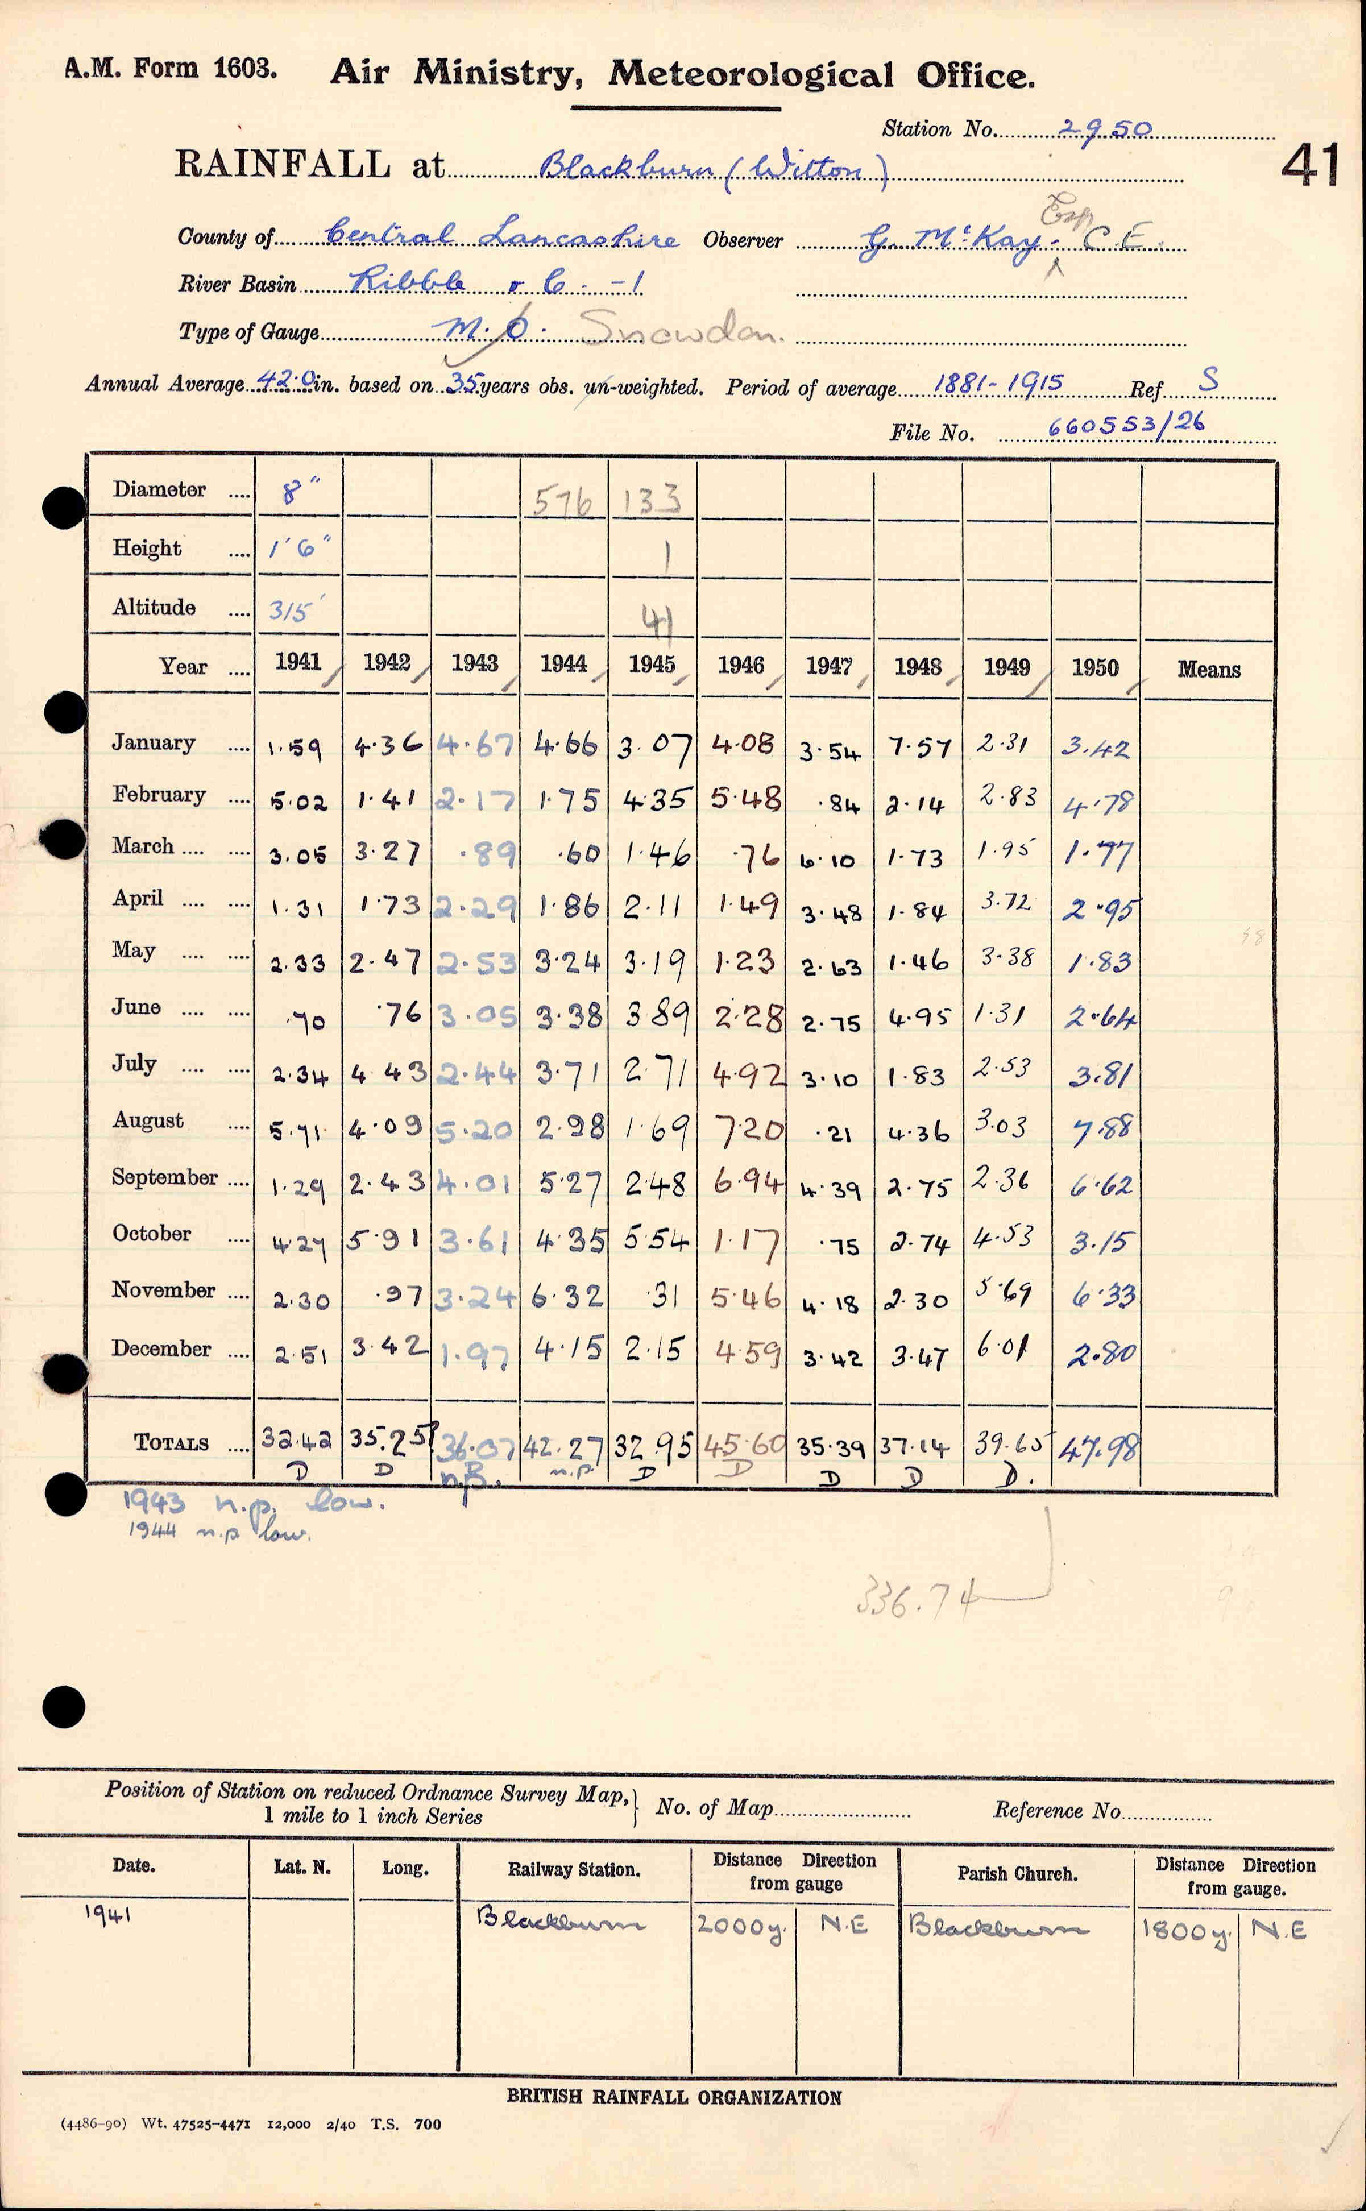 A.M. Form 1603. Air Ministry, Meteorological Office.
Station No. 2950
41
RAINFALL at Blackburn (Witton)
County of Central Lancashire Observer G. McKay. Esq C.E.
River Basin Ribble r C. -1
Type of Gauge M.O. Snowdon.
Annual Average 42.0 in. based on 35 years obs. un-weighted. Period of average 1881-1915 Ref. S
File No. 660553/26
Diameter .... 8" 576 133
Height .... 1'6" 1
Altitude .... 315' 41
Year .... 1941 1942 1943 1944 1945 1946 1947 1948 1949 1950 Means
January .... 1.59 4.36 4.67 4.66 3.07 4.08 3.54 7.57 2.31 3.42
February .... 5.02 1.41 2.17 1.75 4.35 5.48 .84 2.14 2.83 4.78
March .... .... 3.05 3.27 .89 .60 1.46 .76 6.10 1.73 1.95 1.77
April .... .... 1.31 1.73 2.29 1.86 2.11 1.49 3.48 1.84 3.72 2.95
May .... .... 2.33 2.47 2.53 3.24 3.19 1.23 2.63 1.46 3.38 1.83
June .... .... .70 .76 3.05 3.38 3.89 2.28 2.75 4.95 1.31 2.64
July .... .... 2.34 4.43 2.44 3.71 2.71 4.92 3.10 1.83 2.53 3.81
August .... 5.71 4.09 5.20 2.98 1.69 7.20 .21 4.36 3.03 7.88
September .... 1.29 2.43 4.01 5.27 2.48 6.94 4.39 2.75 2.36 6.62
October .... 4.27 5.91 3.61 4.35 5.54 1.17 .75 2.74 4.53 3.15
November .... 2.30 .97 3.24 6.32 .31 5.46 4.18 2.30 5.69 6.33
December .... 2.51 3.42 1.97 4.15 2.15 4.59 3.42 3.47 6.01 2.80
TOTALS .... 32.42 35.25 36.07 42.27 32.95 45.60 35.39 37.14 39.65 47.98
D D n.P. n.P. D D D D D.
1943 n.p. low.
1944 n.p low.
336.74
Position of Station on reduced Ordnance Survey Map, } No. of Map Reference No.
1 mile to 1 inch Series
Date. Lat. N. Long. Railway Station. Distance Direction from gauge Parish Church. Distance Direction from gauge.
1941 Blackburn 2000y. N.E Blackburn 1800y. N.E
BRITISH RAINFALL ORGANIZATION
(4486-90) Wt. 47525-4471 12,000 2/40 T.S. 700